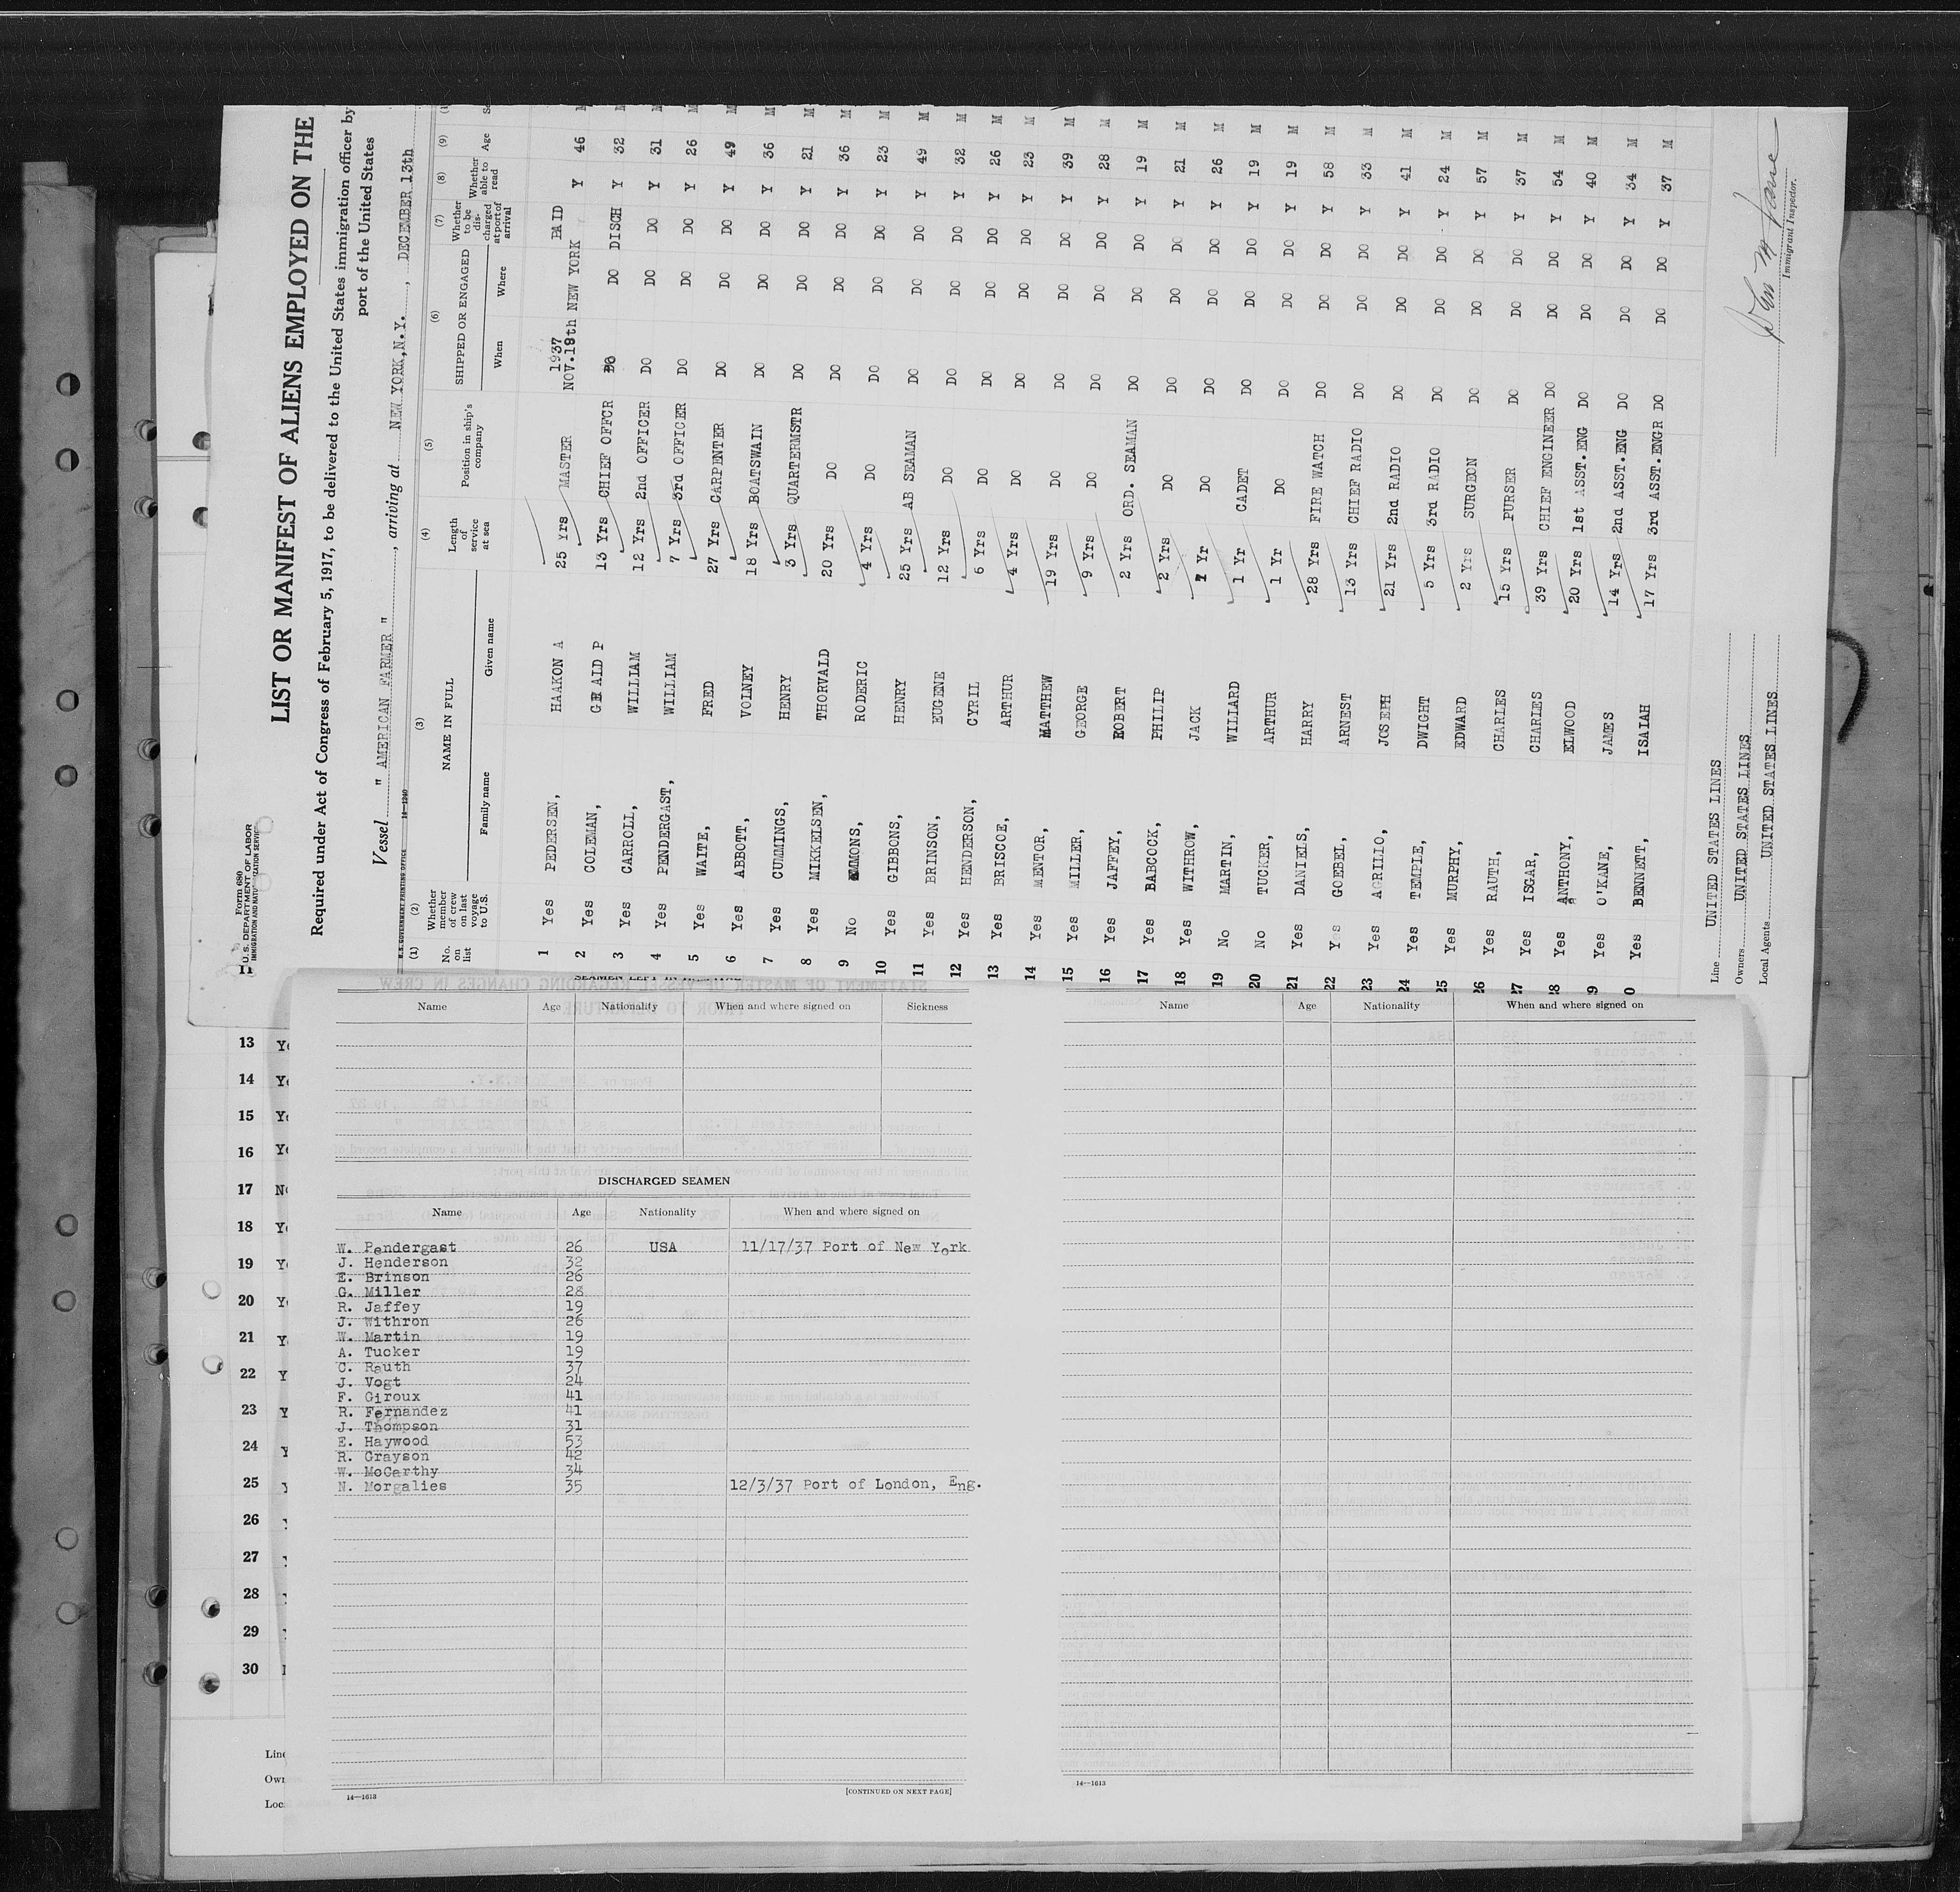 Form 680
U.S. DEPARTMENT OF LABOR
IMMIGRATION AND NATURALIZATION SERVICE
LIST OR MANIFEST OF ALIENS EMPLOYED ON THE
Required under Act of Congress of February 5, 1917, to be delivered to the United States immigration officer by
port of the United States
Vessel " AMERICAN FARMER ", arriving at NEW YORK,N.Y., DECEMBER 13th
U.S. GOVERNMENT PRINTING OFFICE 14—1240
(1) (2) (3) (4) (5) (6) (7) (8) (9)
No. on list Whether member of crew on last voyage to U.S. NAME IN FULL Family name Given name Length of service at sea Position in ship's company SHIPPED OR ENGAGED When Where Whether to be discharged at port of arrival Whether able to read Age
1937
1 Yes PEDERSEN, HAAKON A 25 Yrs MASTER NOV.18th NEW YORK PAID Y 46 M
2 Yes COLEMAN, GERALD P 13 Yrs CHIEF OFFCR DO DO DISCH Y 32 M
3 Yes CARROLL, WILLIAM 12 Yrs 2nd OFFICER DO DO DO Y 31 M
4 Yes PENDERGAST, WILLIAM 7 Yrs 3rd OFFICER DO DO DO Y 26 M
5 Yes WAITE, FRED 27 Yrs CARPENTER DO DO DO Y 49 M
6 Yes ABBOTT, VOLNEY 18 Yrs BOATSWAIN DO DO DO Y 36 M
7 Yes CUMMINGS, HENRY 3 Yrs QUARTERMSTR DO DO DO Y 21 M
8 Yes MIKKELSEN, THORVALD 20 Yrs DO DO DO DO Y 36 M
9 No EMMONS, RODERIC 4 Yrs DO DO DO DO Y 23 M
10 Yes GIBBONS, HENRY 25 Yrs AB SEAMAN DO DO DO Y 49 M
11 Yes BRINSON, EUGENE 12 Yrs DO DO DO DO Y 32 M
12 Yes HENDERSON, CYRIL 6 Yrs DO DO DO DO Y 26 M
13 Yes BRISCOE, ARTHUR 4 Yrs DO DO DO DO Y 23 M
14 Yes MENTOR, MATTHEW 19 Yrs DO DO DO DO Y 39 M
15 Yes MILLER, GEORGE 9 Yrs DO DO DO DO Y 28 M
16 Yes JAFFEY, ROBERT 2 Yrs ORD. SEAMAN DO DO DO Y 19 M
17 Yes BABCOCK, PHILIP 2 Yrs DO DO DO DO Y 21 M
18 Yes WITHROW, JACK 1 Yr DO DO DO DO Y 26 M
19 No MARTIN, WILLARD 1 Yr CADET DO DO DO Y 19 M
20 No TUCKER, ARTHUR 1 Yr DO DO DO DO Y 19 M
21 Yes DANIELS, HARRY 28 Yrs FIRE WATCH DO DO DO Y 58 M
22 Yes GOEBEL, ARNEST 13 Yrs CHIEF RADIO DO DO DO Y 33 M
23 Yes AGRILIO, JOSEPH 21 Yrs 2nd RADIO DO DO DO Y 41 M
24 Yes TEMPLE, DWIGHT 5 Yrs 3rd RADIO DO DO DO Y 24 M
25 Yes MURPHY, EDWARD 2 Yrs SURGEON DO DO DO Y 57 M
26 Yes RAUTH, CHARLES 15 Yrs PURSER DO DO DO Y 37 M
27 Yes ISGAR, CHARLES 39 Yrs CHIEF ENGINEER DO DO DO Y 54 M
8 Yes ANTHONY, ELWOOD 20 Yrs 1st ASST.ENG DO DO DO Y 40 M
9 Yes O'KANE, JAMES 14 Yrs 2nd ASST.ENG DO DO DO Y 34 M
0 Yes BENNETT, ISAIAH 17 Yrs 3rd ASST.ENGR DO DO DO Y 37 M
Line UNITED STATES LINES
Owners UNITED STATES LINES
Local Agents UNITED STATES LINES
Immigrant Inspector.
Name Age Nationality When and where signed on Sickness
DISCHARGED SEAMEN
Name Age Nationality When and where signed on
W. Pendergast 26 USA 11/17/37 Port of New York
J. Henderson 32
E. Brinson 26
G. Miller 28
R. Jaffey 19
J. Withron 26
W. Martin 19
A. Tucker 19
C. Rauth 37
J. Vogt 24
F. Giroux 41
R. Fernandez 41
J. Thompson 31
E. Haywood 53
R. Grayson 42
W. McCarthy 34
N. Morgalies 35 12/3/37 Port of London, Eng.
14—1613
[CONTINUED ON NEXT PAGE]
Name Age Nationality When and where signed on
14—1613
13 Ye
14 Ye
15 Ye
16 Ye
17 No
18 Ye
19 Ye
20 Ye
21 Y
22 Y
23 Y
24 Y
25
26
27
28
29
30
Line
Own
Loc